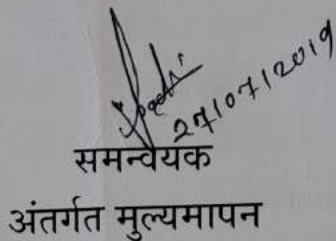 27/07/2019
समन्वयक
अंतर्गत मुल्यमापन